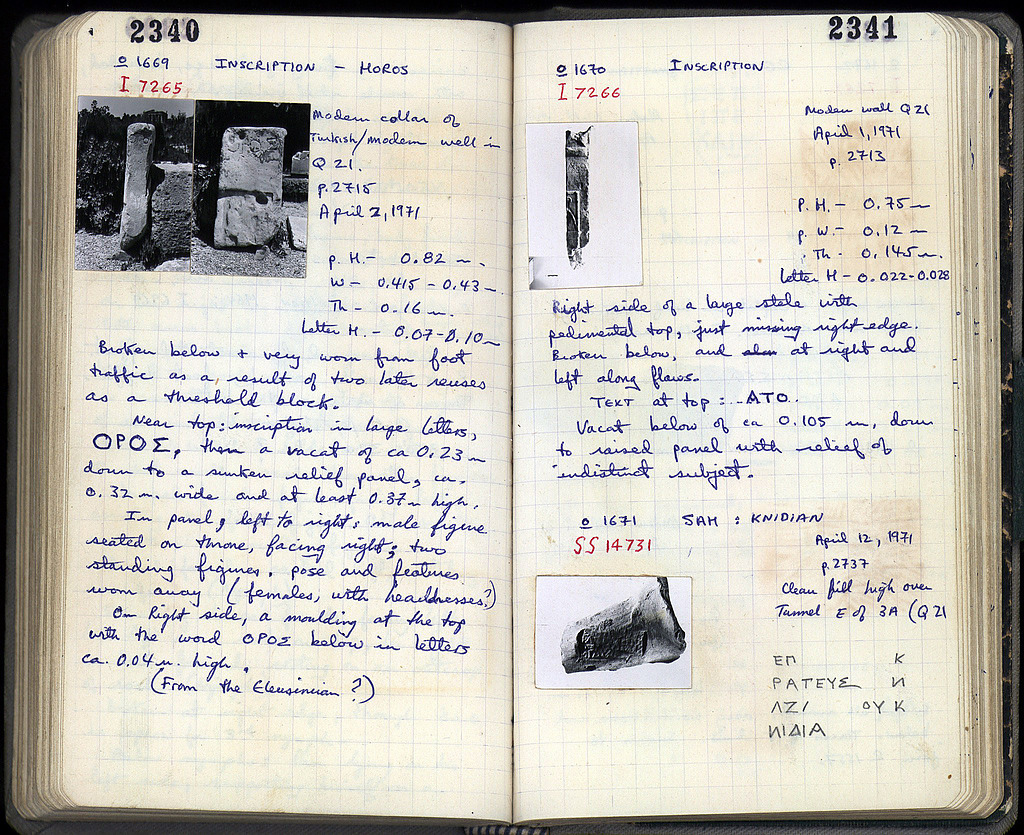 2340
o 1669 INSCRIPTION - HOROS
I 7265
Modern collar of
Turkish/modern well in
Q 21.
p. 2715
April 2, 1971
p. H. - 0.82 m.
W - 0.415 - 0.43 m
Th - 0.16 m.
Letter H. - 0.07-0.10 m
Broken below + very worn from foot
traffic as a result of two later reuses
as a threshold block.
Near top: inscription in large letters,
ΟΡΟΣ, then a vacat of ca 0.23 m
down to a sunken relief panel, ca.
0.32 m. wide and at least 0.37 m high.
In panel, left to right: male figure
seated on throne, facing right; two
standing figures, pose and features
worn away (females, with headdresses?)
On Right side, a moulding at the top
with the word ΟΡΟΣ below in letters
ca. 0.04 m. high.
(From the Eleusinian?)
2341
o 1670 INSCRIPTION
I 7266
Modern wall Q 21
April 1, 1971
p. 2713
P. H. - 0.75 m
p. W. - 0.12 m
Th - 0.145 m.
Letter H - 0.022-0.028
Right side of a large stele with
pedimental top, just missing right edge.
Broken below, and at right and
left along flaws.
TEXT at top: ..ΑΤΟ..
Vacat below of ca 0.105 m, down
to raised panel with relief of
indistinct subject.
o 1671 SAH : KNIDIAN
SS 14731
April 12, 1971
p. 2737
Clean fill high over
Tunnel E of 3A (Q 21
ΕΠ Κ
ΡΑΤΕΥΣ И
ΛΖΙ ΟΥ Κ
ИΙΔΙΑ